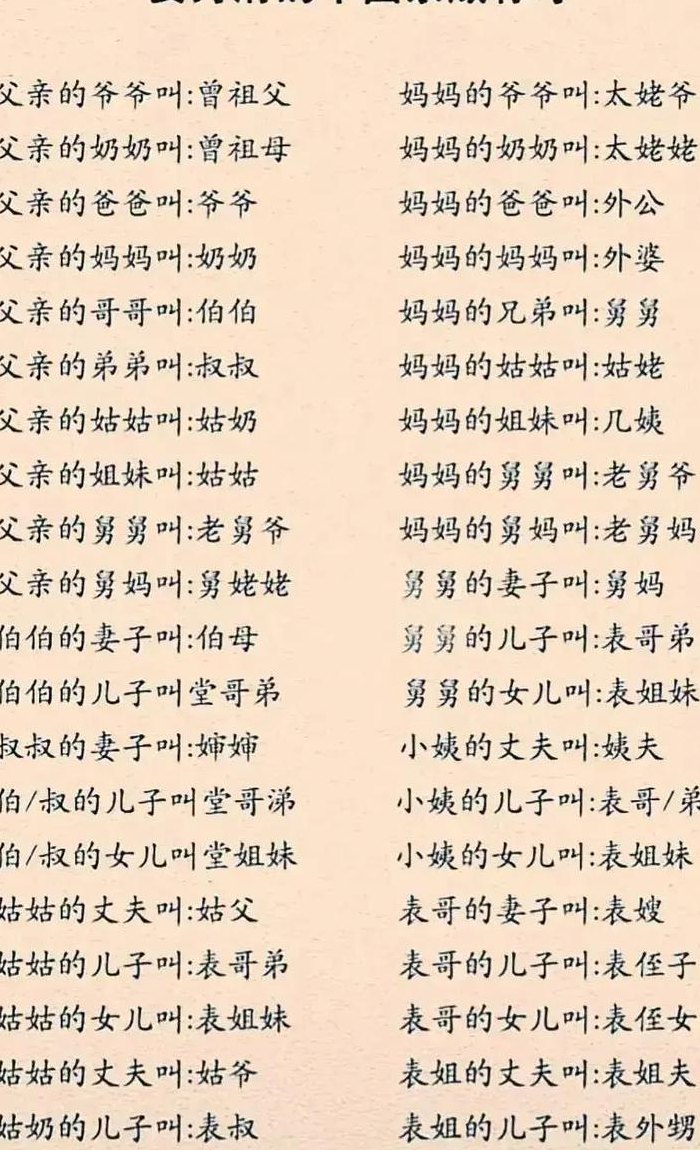 父亲的爷爷叫:曾祖父
父亲的奶奶叫:曾祖母
父亲的爸爸叫:爷爷
父亲的妈妈叫:奶奶
父亲的哥哥叫:伯伯
父亲的弟弟叫:叔叔
父亲的姑姑叫:姑奶
父亲的姐妹叫:姑姑
父亲的舅舅叫:老舅爷
父亲的舅妈叫:舅姥姥
伯伯的妻子叫:伯母
伯伯的儿子叫堂哥弟
叔叔的妻子叫:婶婶
伯/叔的儿子叫堂哥涕
伯/叔的女儿叫堂姐妹
姑姑的丈夫叫:姑父
姑姑的儿子叫:表哥弟
姑姑的女儿叫:表姐妹
姑姑的丈夫叫:姑爷
姑奶的儿子叫:表叔
妈妈的爷爷叫:太姥爷
妈妈的奶奶叫:太姥姥
妈妈的爸爸叫:外公
妈妈的妈妈叫:外婆
妈妈的兄弟叫:舅舅
妈妈的姑姑叫:姑姥
妈妈的姐妹叫:几姨
妈妈的舅舅叫:老舅爷
妈妈的舅妈叫:老舅妈
舅舅的妻子叫:舅妈
舅舅的儿子叫:表哥弟
舅舅的女儿叫:表姐妹
小姨的丈夫叫:姨夫
小姨的儿子叫:表哥/弟
小姨的女儿叫:表姐妹
表哥的妻子叫:表嫂
表哥的儿子叫:表侄子
表哥的女儿叫:表侄女
表姐的丈夫叫:表姐夫
表姐的儿子叫:表外甥